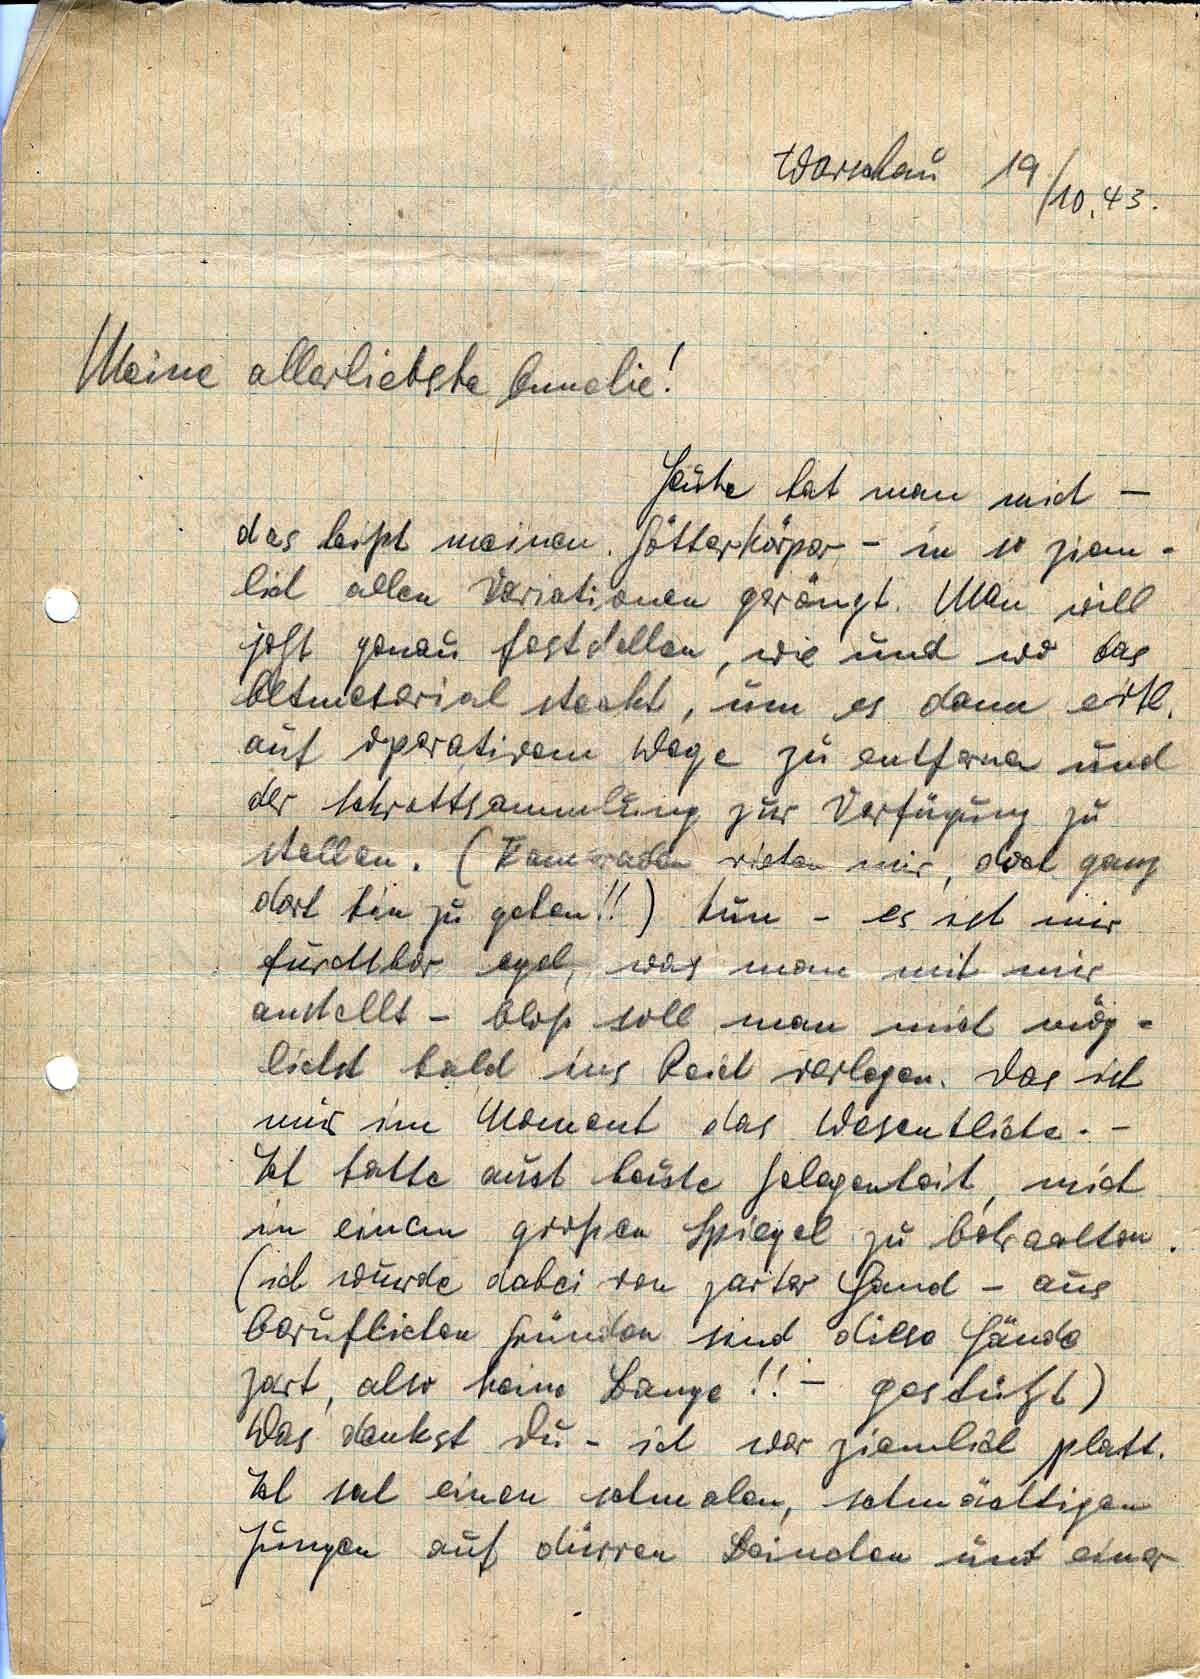 Warschau 19/10.43.
Meine allerliebste Annelie!
Heute hat man mich –
das heißt meinen Götterkörper – in so ziem-
lich allen Variationen geröngt. Man will
jetzt genau feststellen, wie und wo das
Altmaterial steckt, um es dann evtl.
auf operativem Wege zu entfernen und
der Schrottsammlung zur Verfügung zu
stellen. (Kameraden rieten mir, doch ganz
dort hin zu gehen!!) Nun – es ist mir
furchtbar egal, was man mit mir
anstellt – bloß soll man mich mög-
lichst bald ins Reich verlegen. Das ist
mir im Moment das Wesentliche. –
Ich hatte auch heute Gelegenheit, mich
in einem großen Spiegel zu betrachten.
(ich wurde dabei von zarter Hand – aus
beruflichen Gründen sind diese Hände
zart, also keine Bange!! – gestützt)
Was denkst Du – ich war ziemlich platt.
Ich sah einen schmalen, schmächtigen
Jungen auf dürren Beinchen und einer